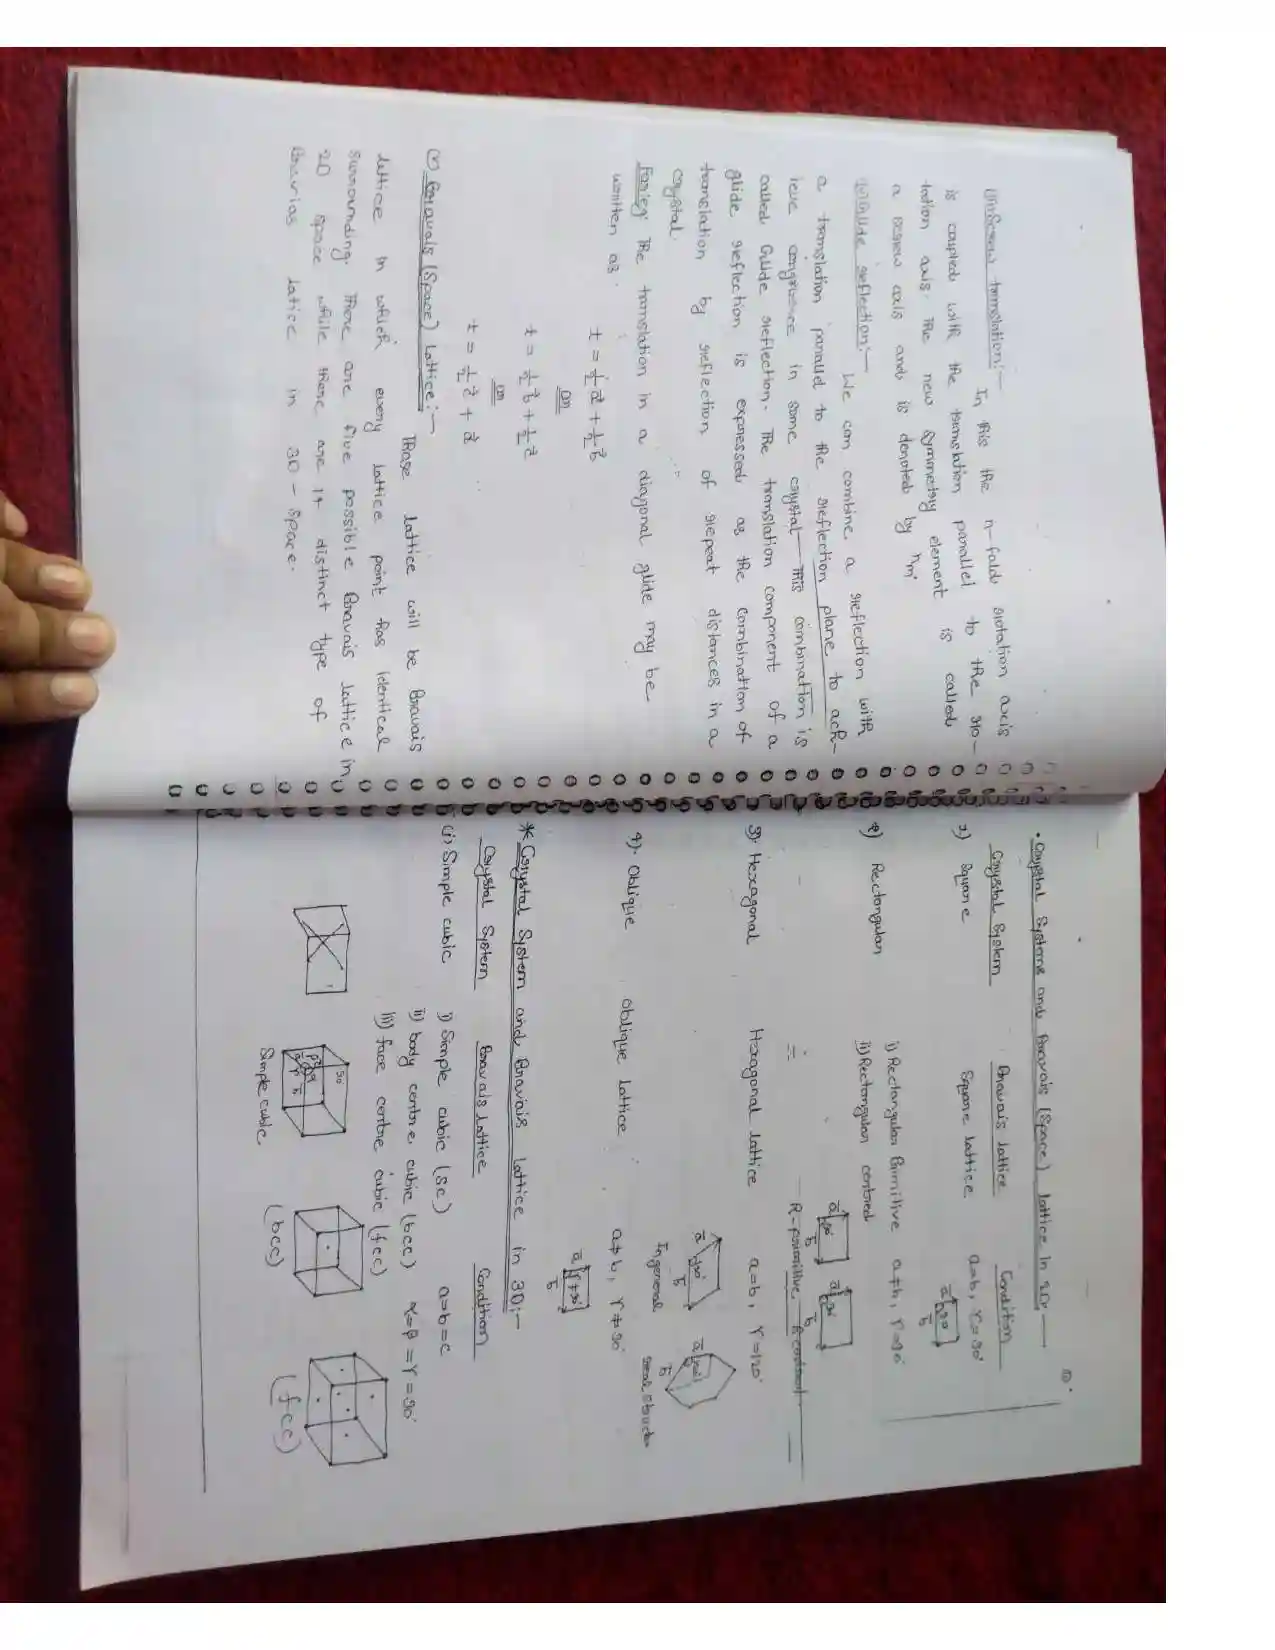 (iii) Screw translation:—
In this the n-fold rotation axis
is coupled with the translation parallel to the ro-
tation axis. The new symmetry element is called
a screw axis and is denoted by nm.
(iv) Glide reflection:—
We can combine a reflection with
a translation parallel to the reflection plane to ach-
ieve congruence in some crystal. This combination is
called Glide reflection. The translation component of a
glide reflection is expressed as the combination of
translation by reflection of repeat distances in a
crystal.
The translation in a diagonal glide may be
written as.
t = 1/2 a + 1/2 b
or
t = 1/2 b + 1/2 c
or
t = 1/2 c + a
(v) Bravais (Space) lattice:—
Those lattice will be Bravais
lattice in which every lattice point has identical
surrounding. There are five possible Bravais lattice in
2D space while there are 14 distinct type of
Bravias latice in 3D-space.
• Crystal Systems and Bravais (Space) lattice in 2D:—
Crystal System Bravais lattice Condition
1) Square Square lattice a=b, γ=90°
a 90° b
2) Rectangular i) Rectangular Primitive a≠b, γ=90°
ii) Rectangular centred
a 90° b a 90° b
R-primitive, R-centred
3). Hexagonal Hexagonal lattice a=b, γ=120°
a b a b
In general
4). Oblique Oblique lattice a≠b, γ≠90°
a γ≠90° b
* Crystal System and Bravais lattice in 3D:—
Crystal System Bravais lattice Condition
(i) Simple cubic i) Simple cubic (Sc) a=b=c
ii) body centre cubic (bcc) α=β=γ=90°
iii) face centre cubic (fcc)
90°
Simple cubic (bcc) (fcc)